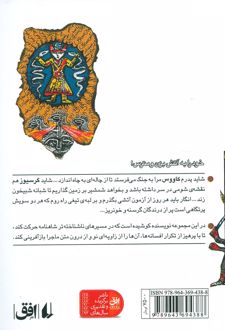 خود را به آتش بزن و مترس!
شاید پدرم کاووس مرا به جنگ می‌فرستد تا از چاله‌ای به چاه اندازد... شاید گرسیوز هم
نقشه‌ی شومی در سر داشته باشد و بخواهد شمشیر بر زمین گذاریم تا شبانه شبیخون
زند... انگار باید هر روز از آزمون آتشی بگذرم و بر لبه‌ی تیغی راه روم که هر دو سویش
پرتگاهی است پر از درندگان گرسنه و خونریز...
در این مجموعه نویسنده کوشیده است که در مسیرهای ناشناخته‌تر شاهنامه حرکت کند،
تا با پرهیز از تکرار افسانه‌ها، آن‌ها را از زاویه‌ای نو و از درون متن ماجرا بازآفرینی کند.
افق
ISBN 978-964-369-438-8
9 789643 694388